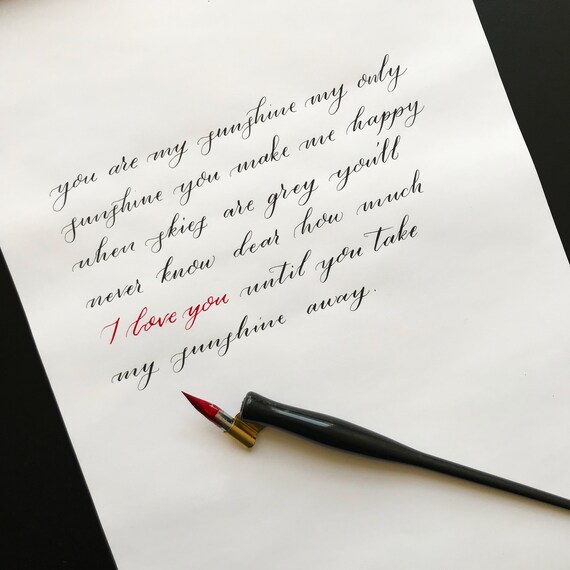 you are my sunshine my only
sunshine you make me happy
when skies are grey you'll
never know dear how much
I love you until you take
my sunshine away.